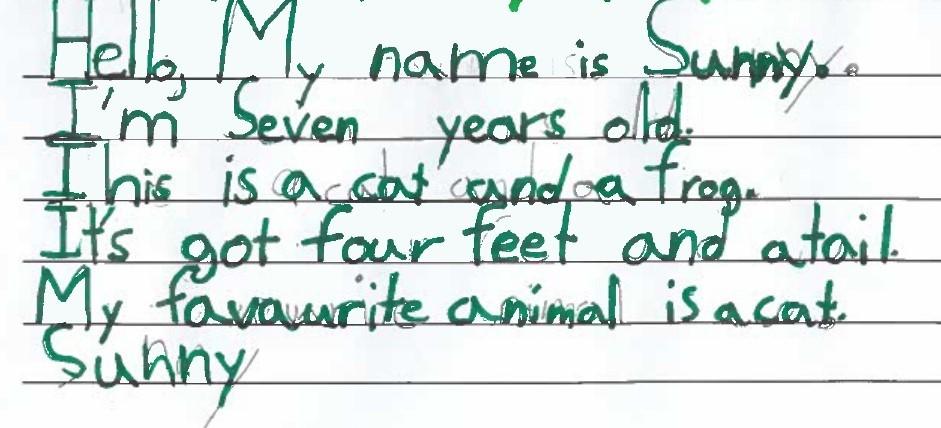 Hello, My name is Sunny.
I'm Seven years old.
This is a cat and a frog.
It's got four feet and a tail.
My favaurite animal is a cat.
Sunny